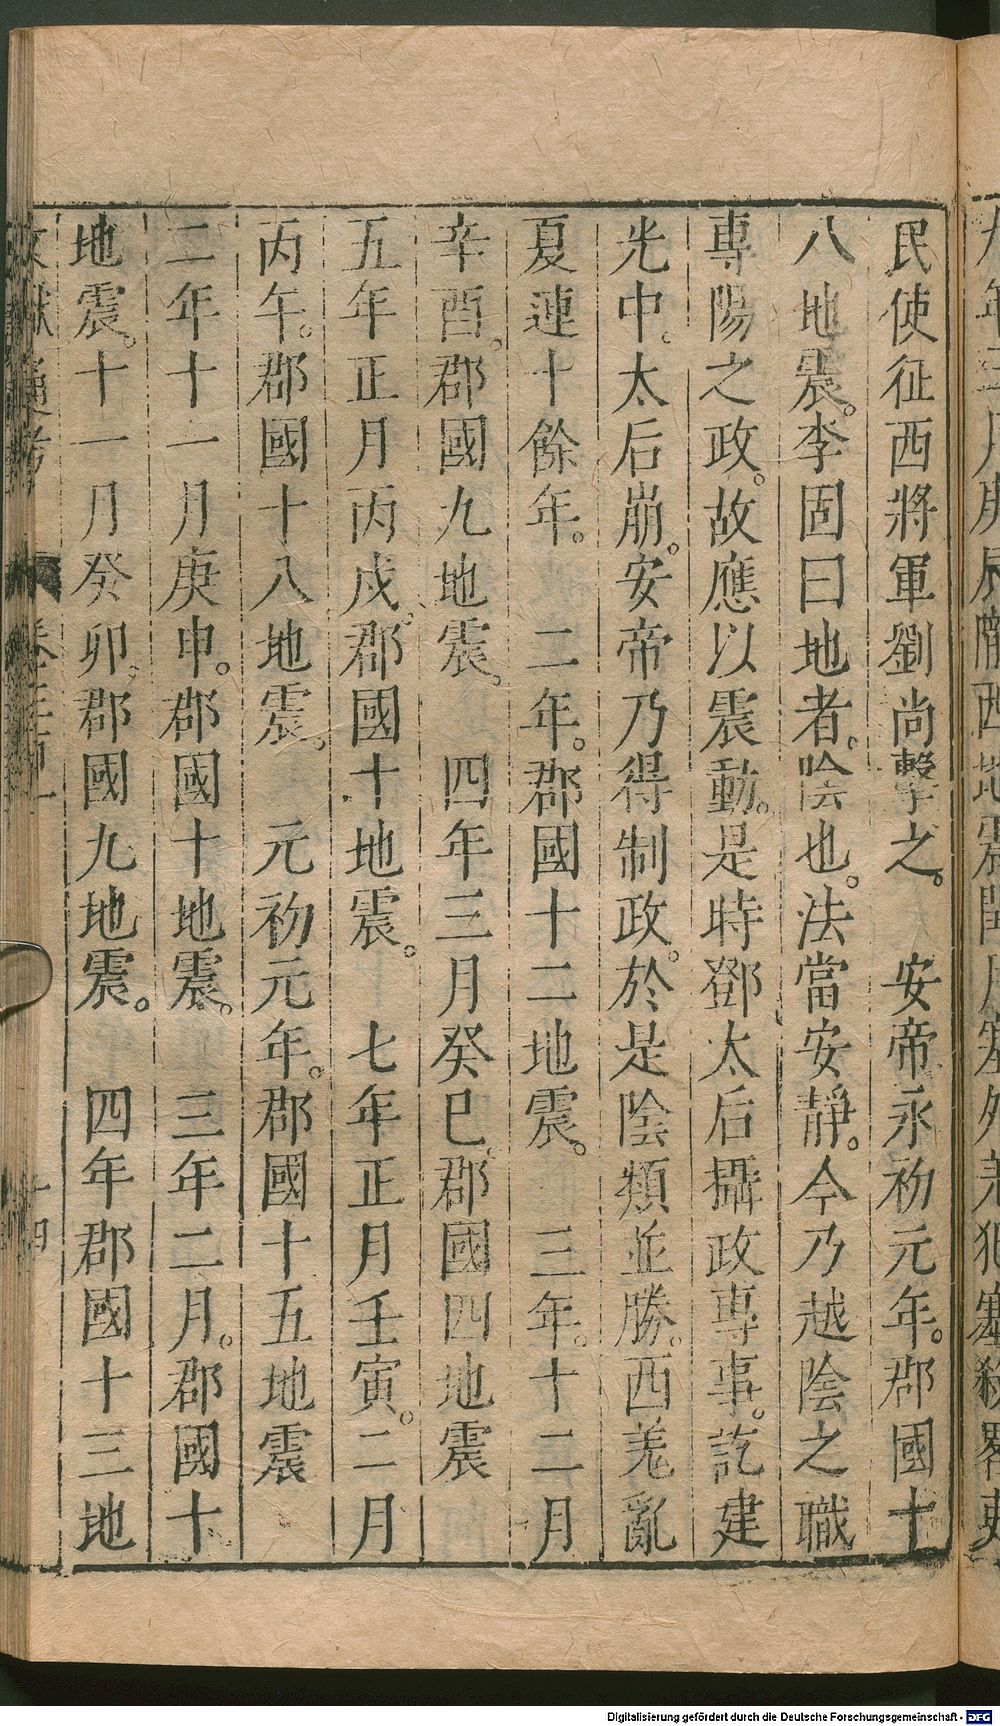 民使征西將軍劉尚擊之。　安帝永初元年。郡國十
八地震。李固曰地者。陰也。法當安靜。今乃越陰之職
專陽之政。故應以震動。是時鄧太后攝政專事。訖建
光中。太后崩。安帝乃得制政。於是陰類並勝。西羌亂
夏連十餘年。　二年。郡國十二地震。　三年。十二月
辛酉。郡國九地震。　四年三月癸巳。郡國四地震
五年正月丙戌。郡國十地震。　七年正月壬寅。二月
丙午。郡國十八地震。　元初元年。郡國十五地震
二年十一月庚申。郡國十地震。　三年二月。郡國十
地震。十一月癸卯。郡國九地震。　四年郡國十三地
Digitalisierung gefördert durch die Deutsche Forschungsgemeinschaft - DFG